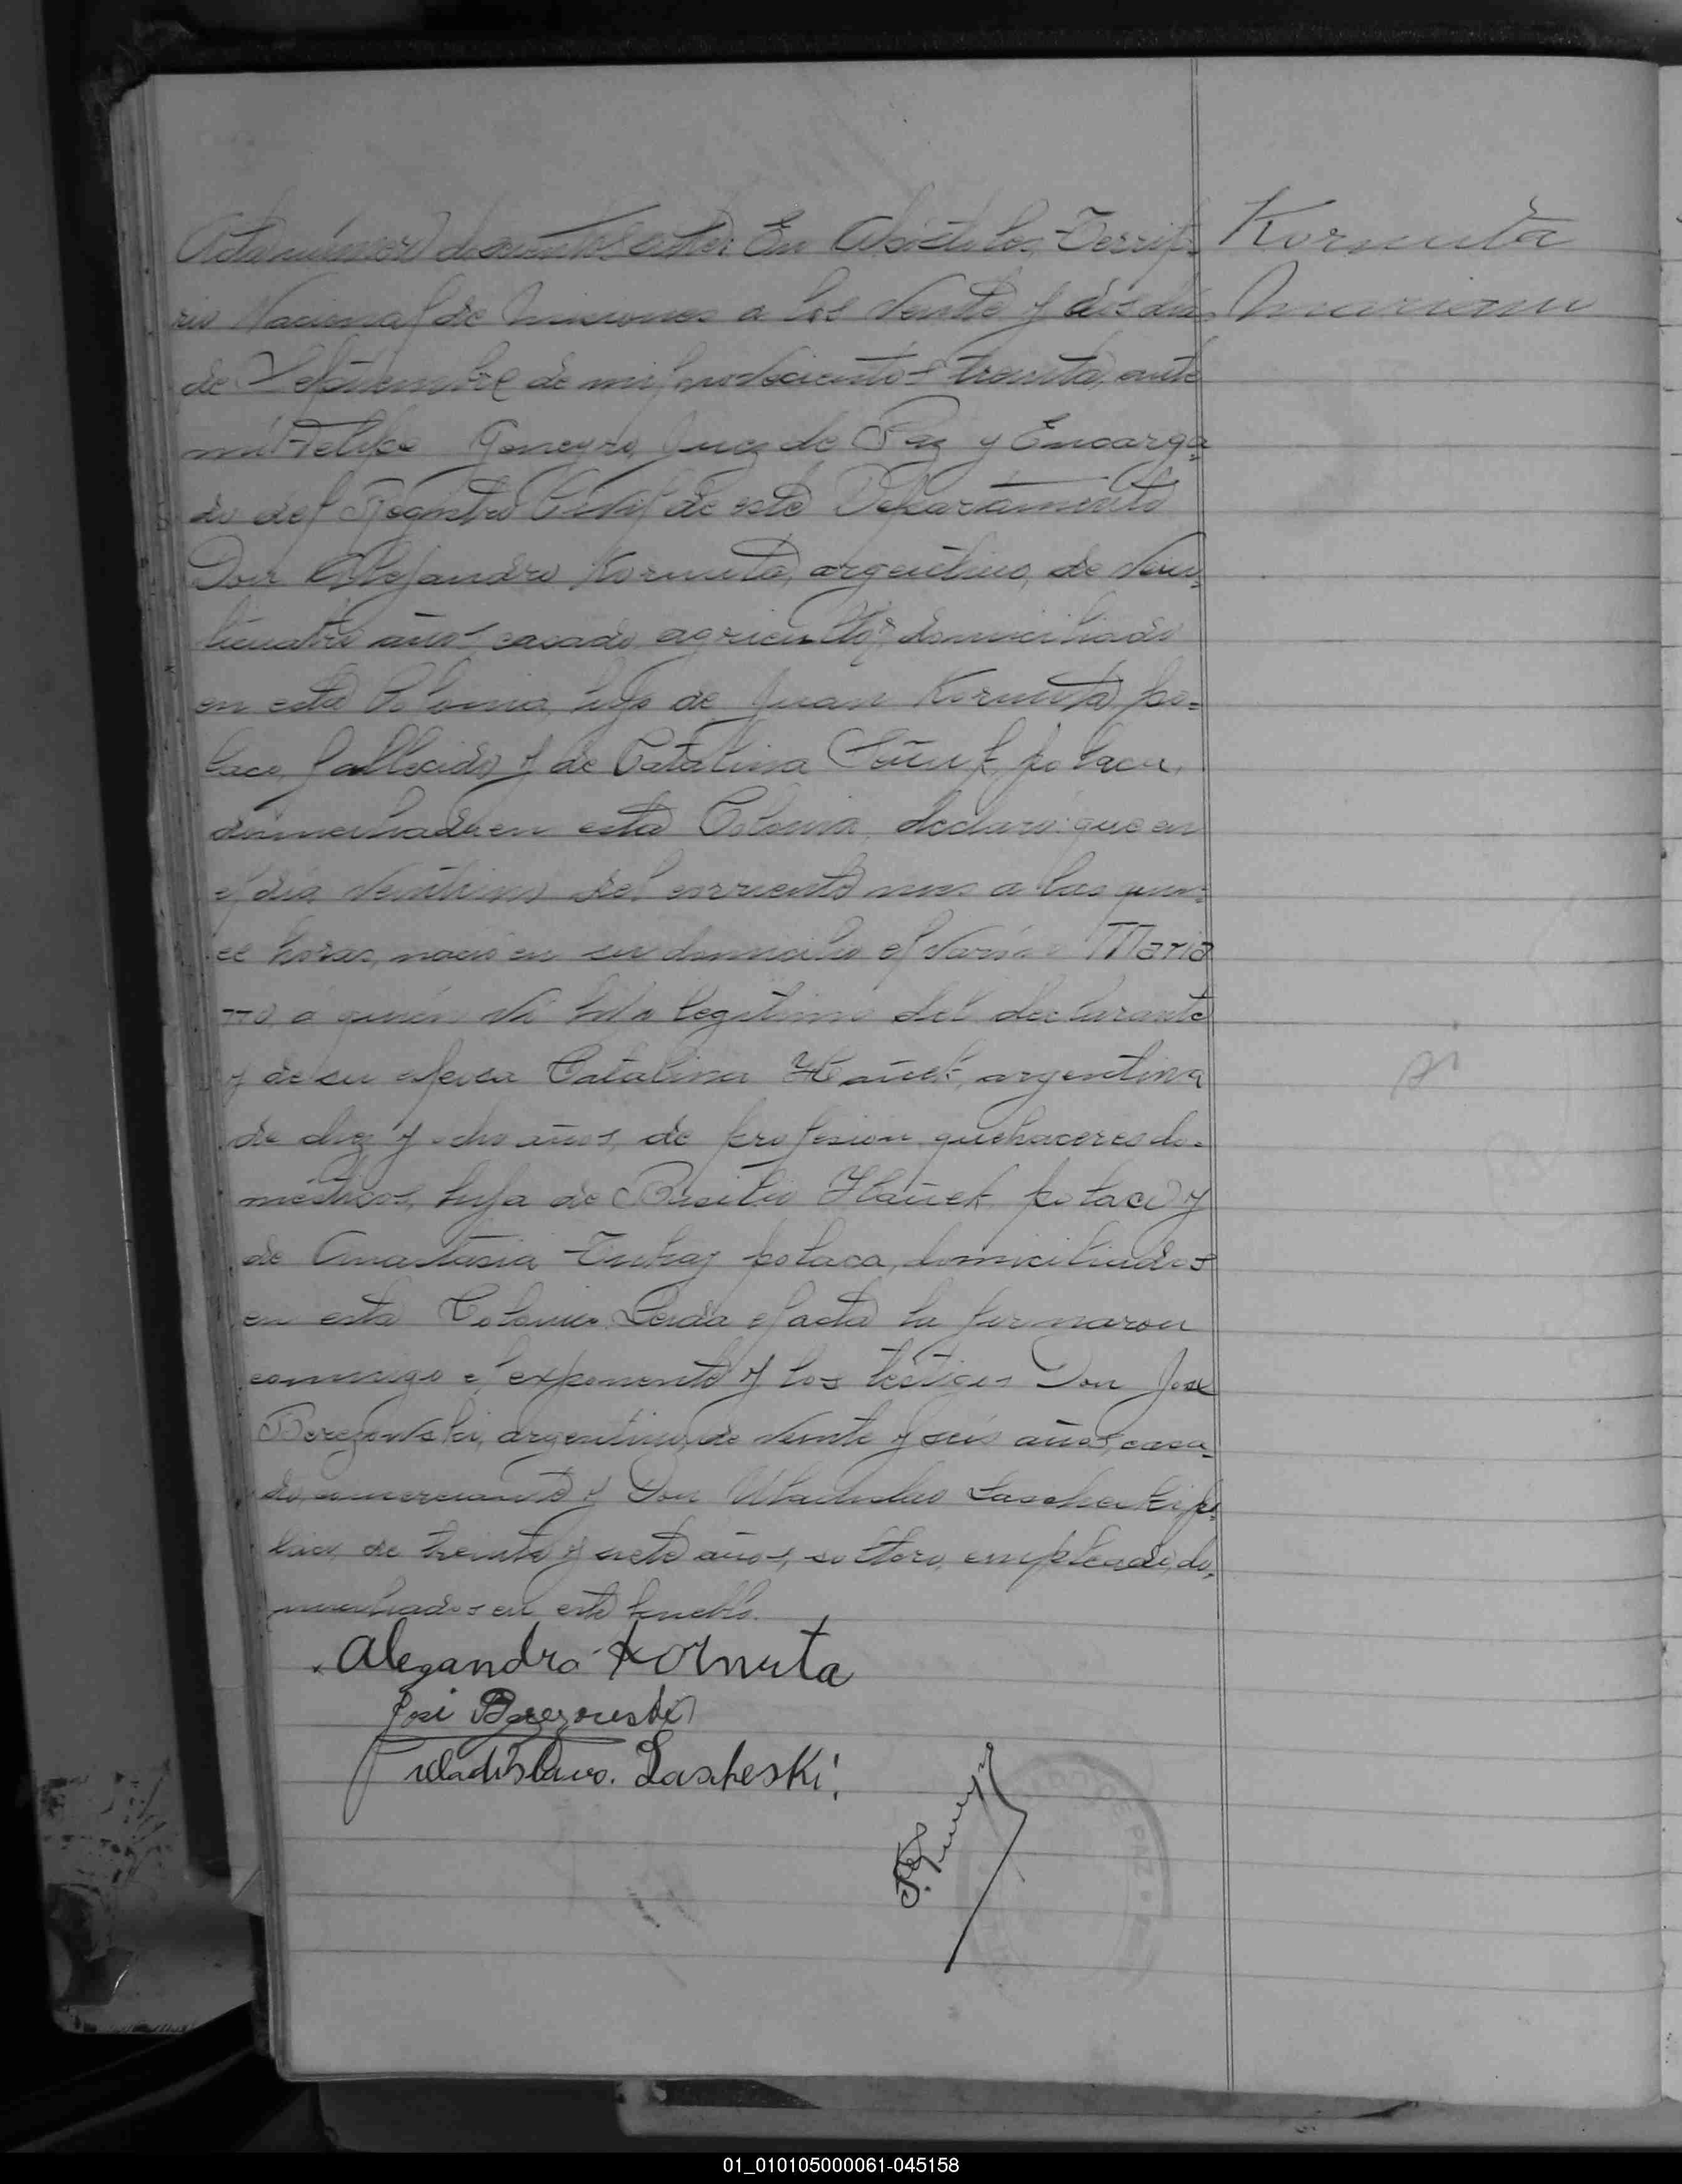 Acta número doscientos ocho: En Apóstoles, Territo-
rio Nacional de Misiones a los veinte y dos dias
de Septiembre de mil novecientos treinta, ante
mí Felipe Juez de Paz y Encarga-
do del Registro Civil de este Departamento
Don Alejandro Kornuta, argentino, de vein-
ticuatro años, casado, agricultor, domiciliado
en esta Colonia, hijo de Juan Kornuta, po-
laco, fallecido y de Catalina polaca,
domiciliada en esta Colonia, declaró: que en
el dia veintiuno del corriente mes a las quin-
ce horas, nació en su domicilio el varón Maria
no a quien vi hijo legítimo del declarante
y de su esposa Catalina Hauck, argentina
de diez y ocho años, de profesion quehaceres do-
mésticos, hija de Basilio Hauck polaco y
de Anastasia polaca, domiciliados
en esta Colonia. Leida el acta la firmaron
conmigo el exponente y los testigos Don José
Berezowski, argentino, de veinte y seis años, casa-
do, comerciante y Don Uladislao Lascheski po-
laco, de treinta y siete años, soltero, empleado, do-
miciliados en este pueblo.
Kornuta
Mariano
Alegandro Kornuta
José Berezouski
Uladislavo. Lascheski
DE PAZ
01_010105000061-045158